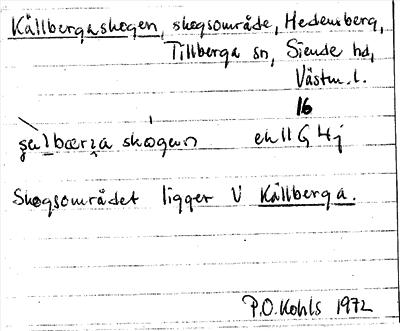 Kållbergaskogen, skogsområde, Hedensberg,
Tillberga sn, Siende hd,
Västm. l.
16
skogen ek 11 G 4 j
Skogsområdet ligger V Kållberga.
P.O. Kohls 1972